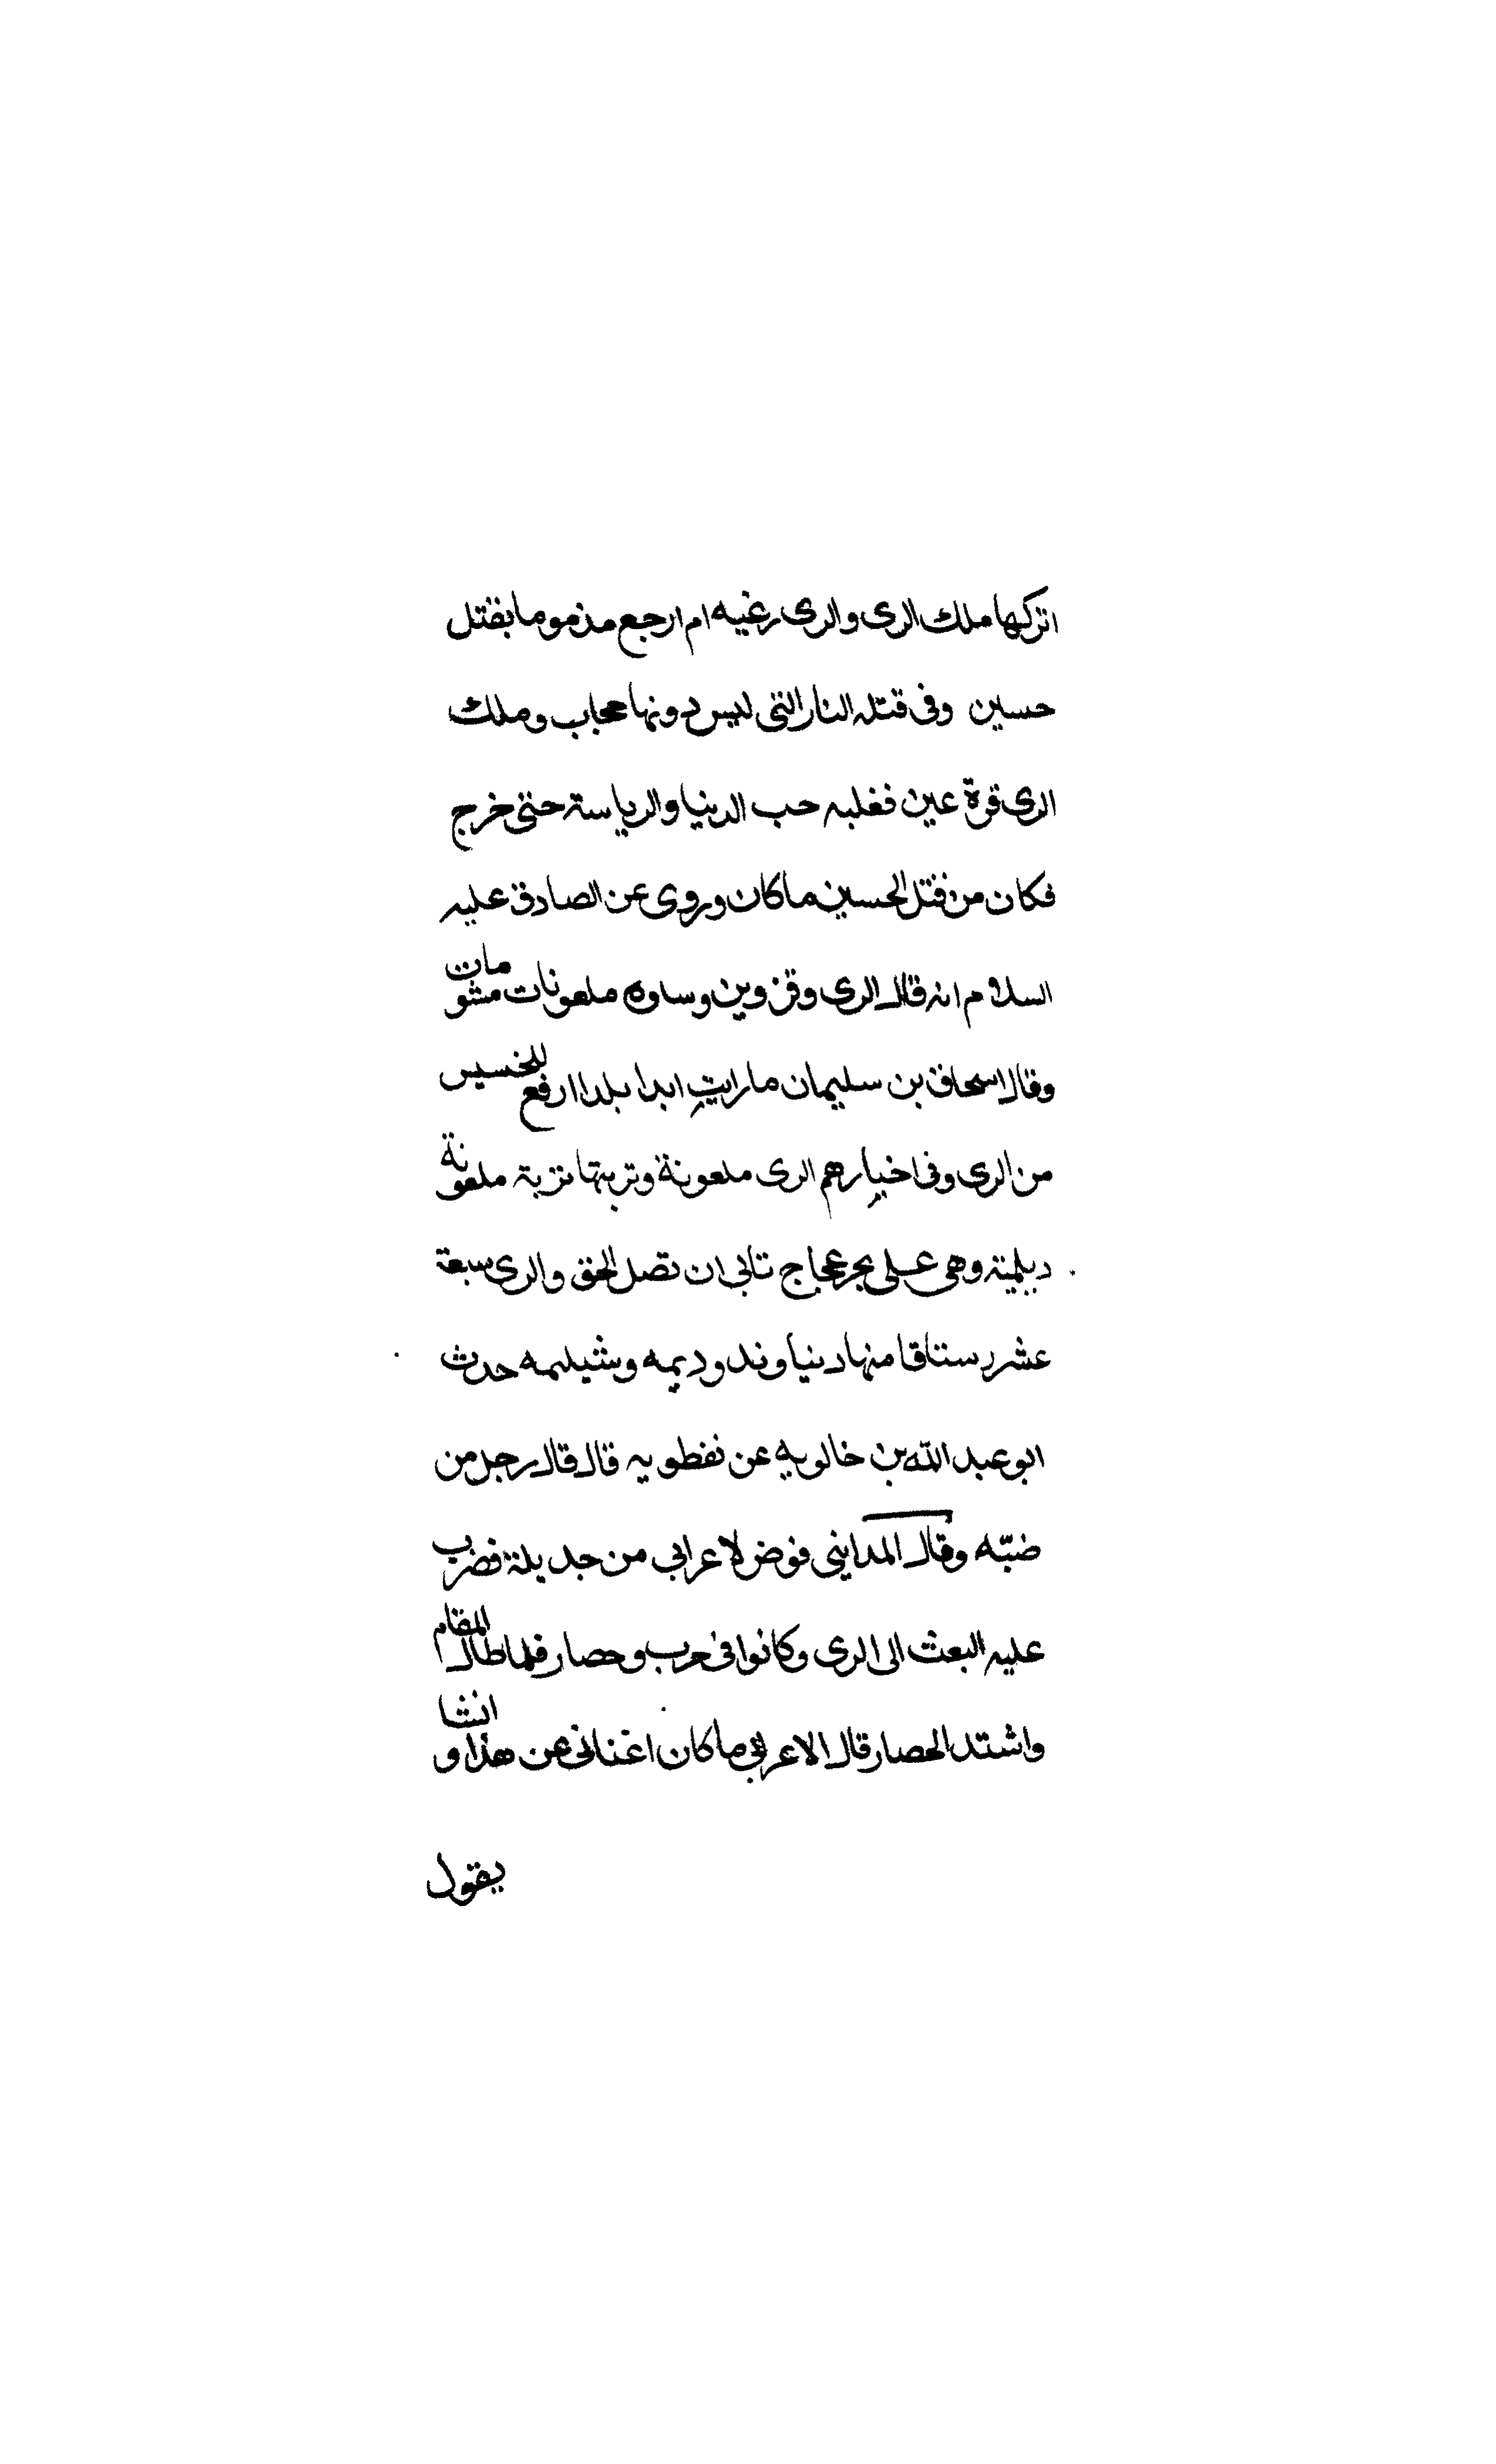 اتركها ملك الرى والرى رغيه ام ارجع مذموما بقتل
حسين وفى قتله النار التى ليس دونها حجاب وملك
الرى قرة عين فغلبه حب الدنيا والرياسة حتى خرج
فكان من قتل الحسين ما كان وروى عن الصادق عليه
السلام انه قال الرى وقزوين وساوه ملعونات مشومات
وقال اسحاق بن سليمان ما رايت ابدا بلدا ارفع للخسيس
من الرى وفى اخبارهم الرى ملعونة وتربتها تربة ملعونة
ديلمية وهى على بحر عجاج تابى ان تصل الحق والرى سبعة
عشر رستاقا منها دنياوند وديمه وشيلمه حدث
ابو عبد الله بن خالويه عن نفطويه قال قال رجل من
ضبّه وقال المداينى فوض لاعرابى من جديلة فضرب
عليه البعث الى الرى وكانوا فى حرب وحصار فلما طال المقام
واشتد الحصار قال الاعرابى ما كان اغنانى عن هذا وانشا
يقول